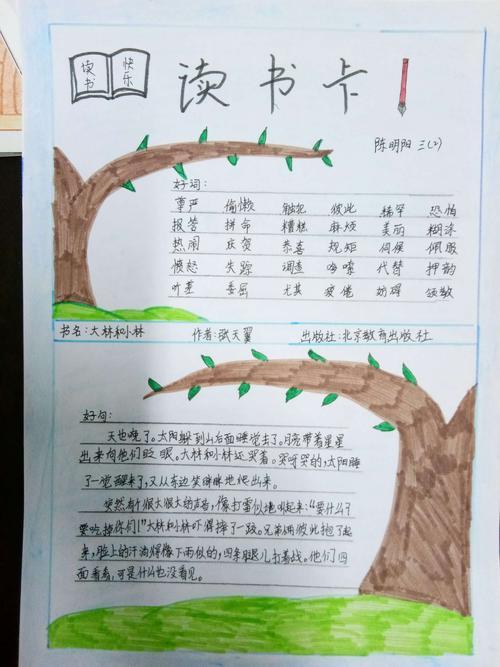 读书 快乐
读书卡
陈明阳 三(2)
好词:
尊严 偷懒 触犯 彼此 稀罕 恐怕
报答 拼命 糟糕 麻烦 美丽 糊涂
热闹 庆贺 恭喜 规矩 伺候 佩服
愤怒 失踪 调查 代替 押韵
吩咐 委屈 尤其 疲倦 妨碍 领教
书名:大林和小林 作者:张天翼 出版社:北京教育出版社
好句:
天也晚了。太阳躲到山后面睡觉去了。月亮带着星星
出来向他们眨眼。大林和小林还哭着。哭呀哭的,太阳睡
了一觉醒来了,又从东边笑眯眯地爬出来。
突然有个很大很大的声音,像打雷似地吼起来:“要什么?
要吃掉你们!”大林和小林吓得摔了一跤。兄弟俩彼此抱了起
来,脸上的汗油焊像下雨似的,四条腿儿打着战。他们四
面看看,可是什么也没看见。